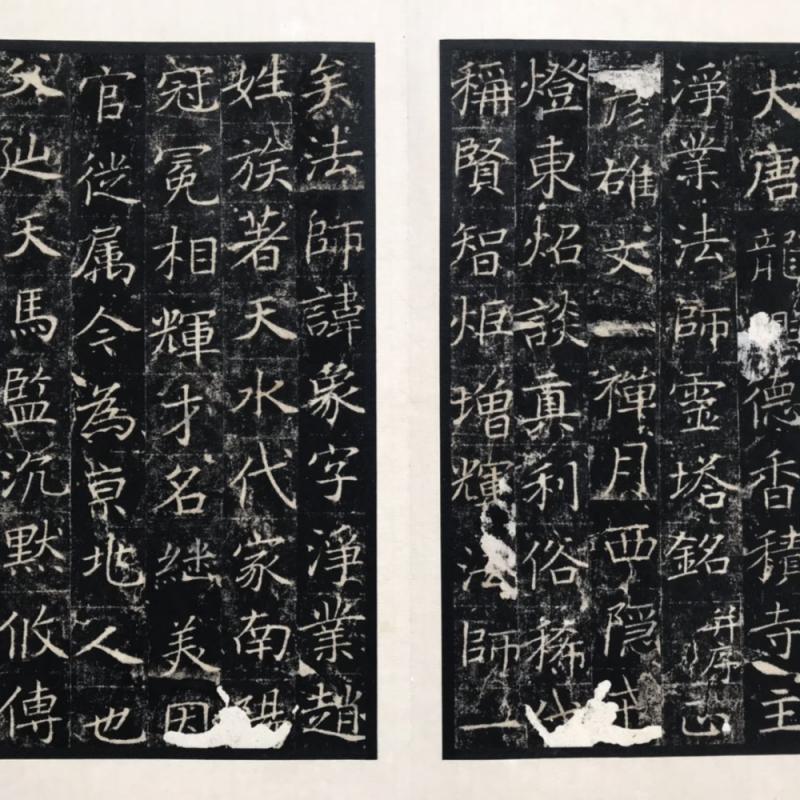 大唐龍德香積寺主
淨業法師靈塔銘并序
彦雄文一禪月西隱戒
燈東炤談真利俗稀
稱賢智炬增輝法師一
矣法師諱象字淨業趙
姓族著天水代家南陽
冠冕相輝才名継美因
官從属今為京兆人也
父天馬監沉默攸傳